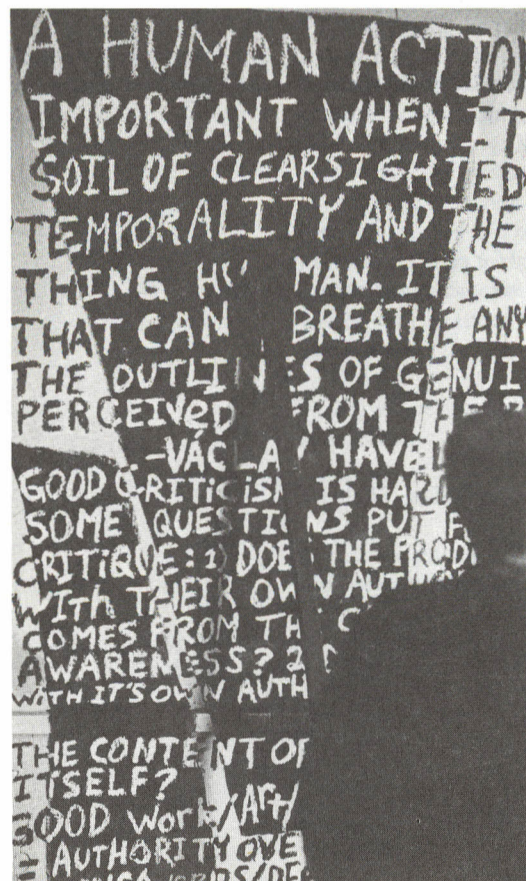 A HUMAN ACTION
IMPORTANT WHEN IT
SOIL OF CLEARSIGHTED
TEMPORALITY AND THE
THING HUMAN. IT IS
THAT CAN BREATHE ANY
THE OUTLINES OF GENUI
PERCEIVED FROM THE
-VÁCLAV HAVEL
GOOD CRITICISM IS HARD
SOME QUESTIONS PUT F
CRITIQUE: 1) DOES THE PROD
WITH THEIR OWN AUTH
COMES FROM TH
AWARENESS? 2
WITH IT'S OWN AUTH
THE CONTENT OF
ITSELF?
GOOD WORK/Art/
AUTHORITY OVE